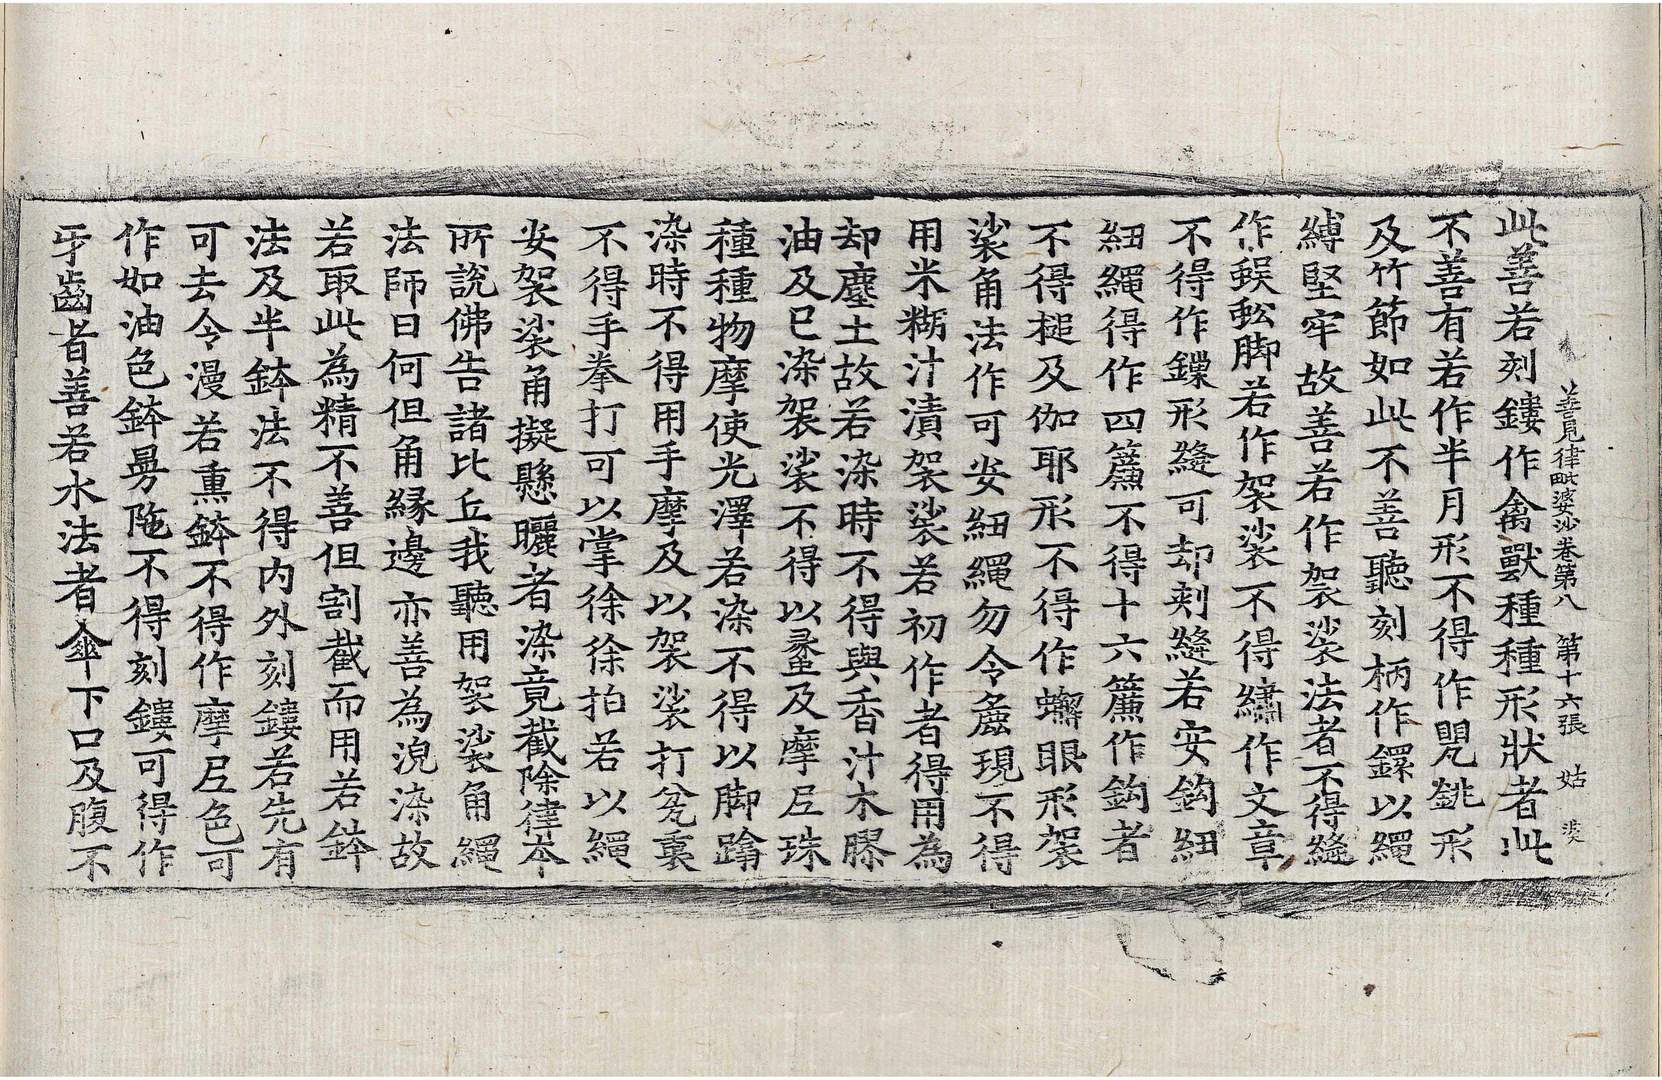 善見律毗婆沙卷第八 第十六張 姑
此善若刻鏤作禽獸種種形狀者此
不善有若作半月形不得作兕銚形
及竹節如此不善聽刻柄作鏍以繩
縛堅牢故善若作袈裟法者不得縫
作蜈蚣脚若作袈裟不得繡作文章
不得作鏁形縫可却刾縫若安鈎紐
紐繩得作四簾不得十六簾作鈎者
不得槌及伽耶形不得作蠏眼形袈
裟角法作可安紐繩勿令麁現不得
用米糊汁漬袈裟若初作者得用為
却塵土故若染時不得與香汁木膠
油及巳染袈裟不得以蠡及摩尼珠
種種物摩使光澤若染不得以脚蹹
染時不得用手摩及以袈裟打瓫裏
不得手拳打可以掌徐徐拍若以繩
安袈裟角擬懸曬者染竟截除律本
所說佛告諸比丘我聽用袈裟角繩
法師曰何但角緣邊亦善為浼染故
若取此為精不善但割截而用若鉢
法及半鉢法不得内外刻鏤若先有
可去令漫若熏鉢不得作摩尼色可
作如油色鉢㬅陁不得刻鏤可得作
牙齒者善若水法者傘下口及腹不